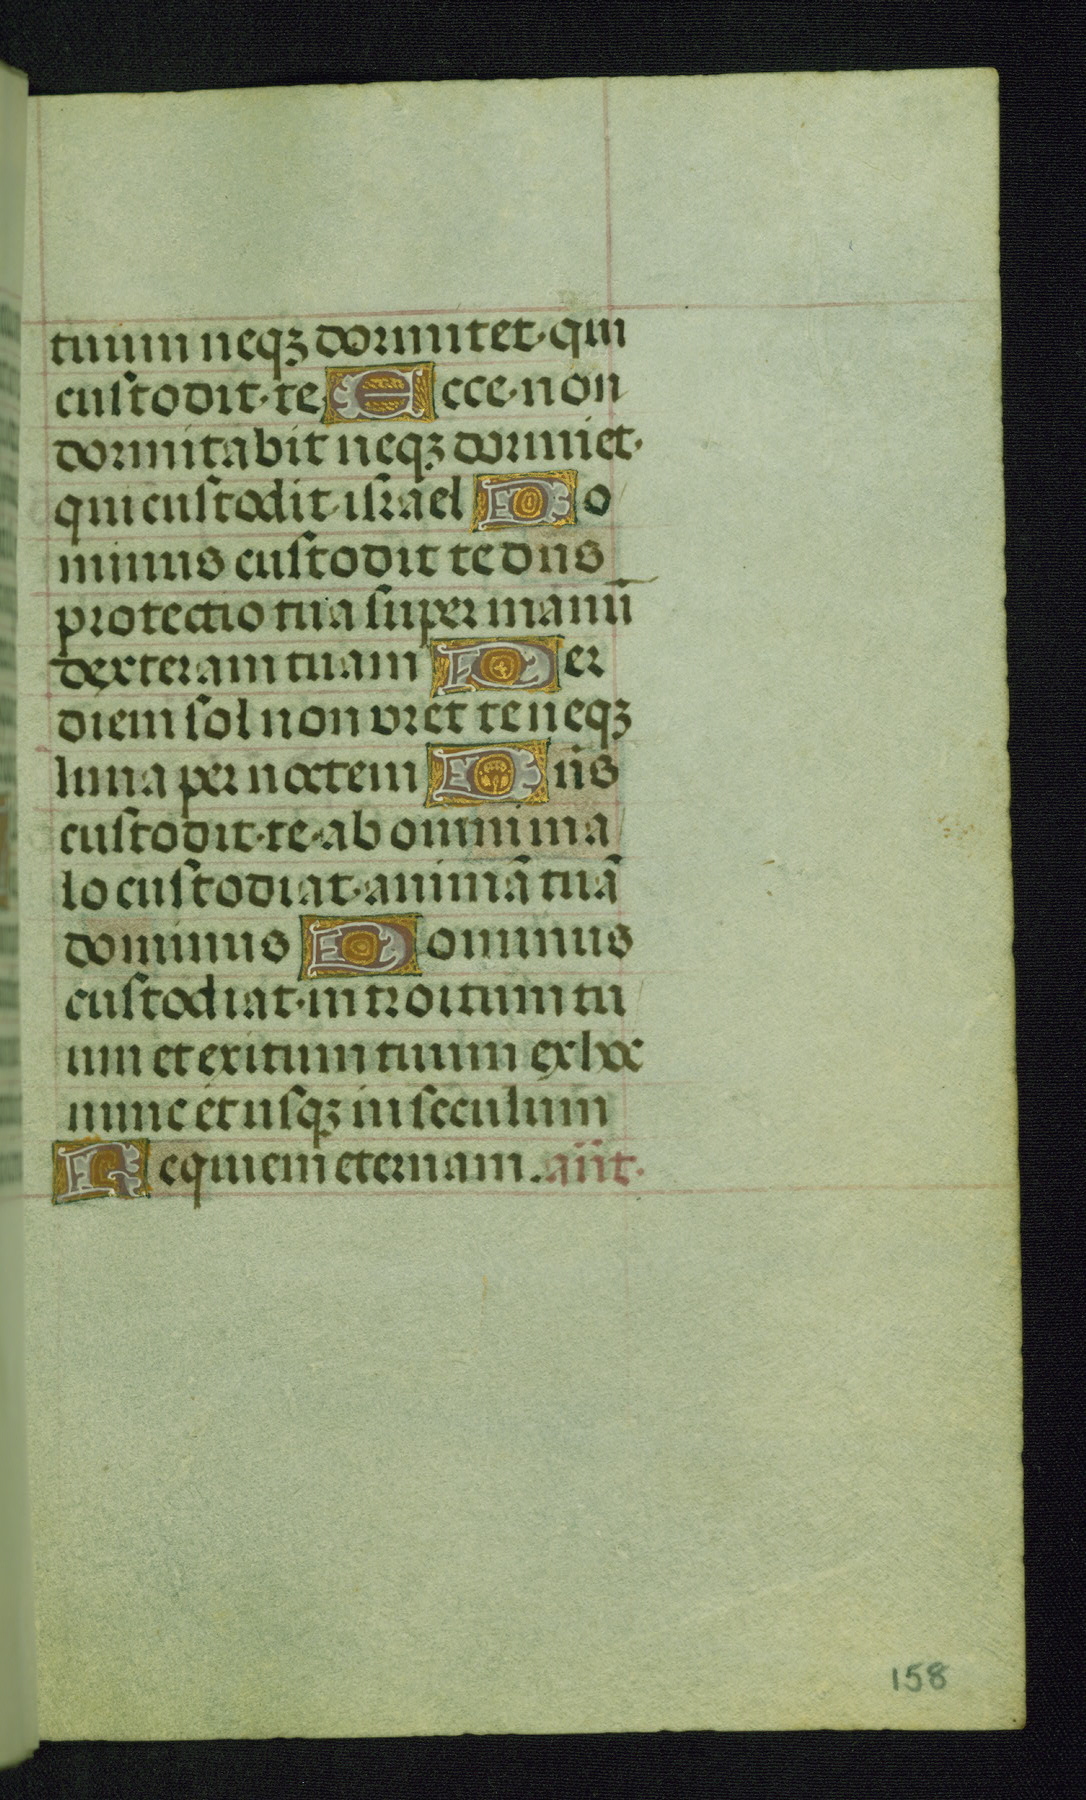 tuum neqꝫ dormitet· qui
custodit· te Ecce· non
dormitabit neqꝫ dormiet·
qui custodit· israel Do
minus custodit te dn̄s
protectio tua super manū
dexteram tuam Per
diem sol non vret te neqꝫ
luna per noctem Dn̄s
custodit· te· ab omni ma
lo custodiat· animā tuā
dominus Dominus
custodiat· introitum tu
um et exitum tuum ex hoc
nunc et usqꝫ in seculum
Requiem eternam. an̄t·
158